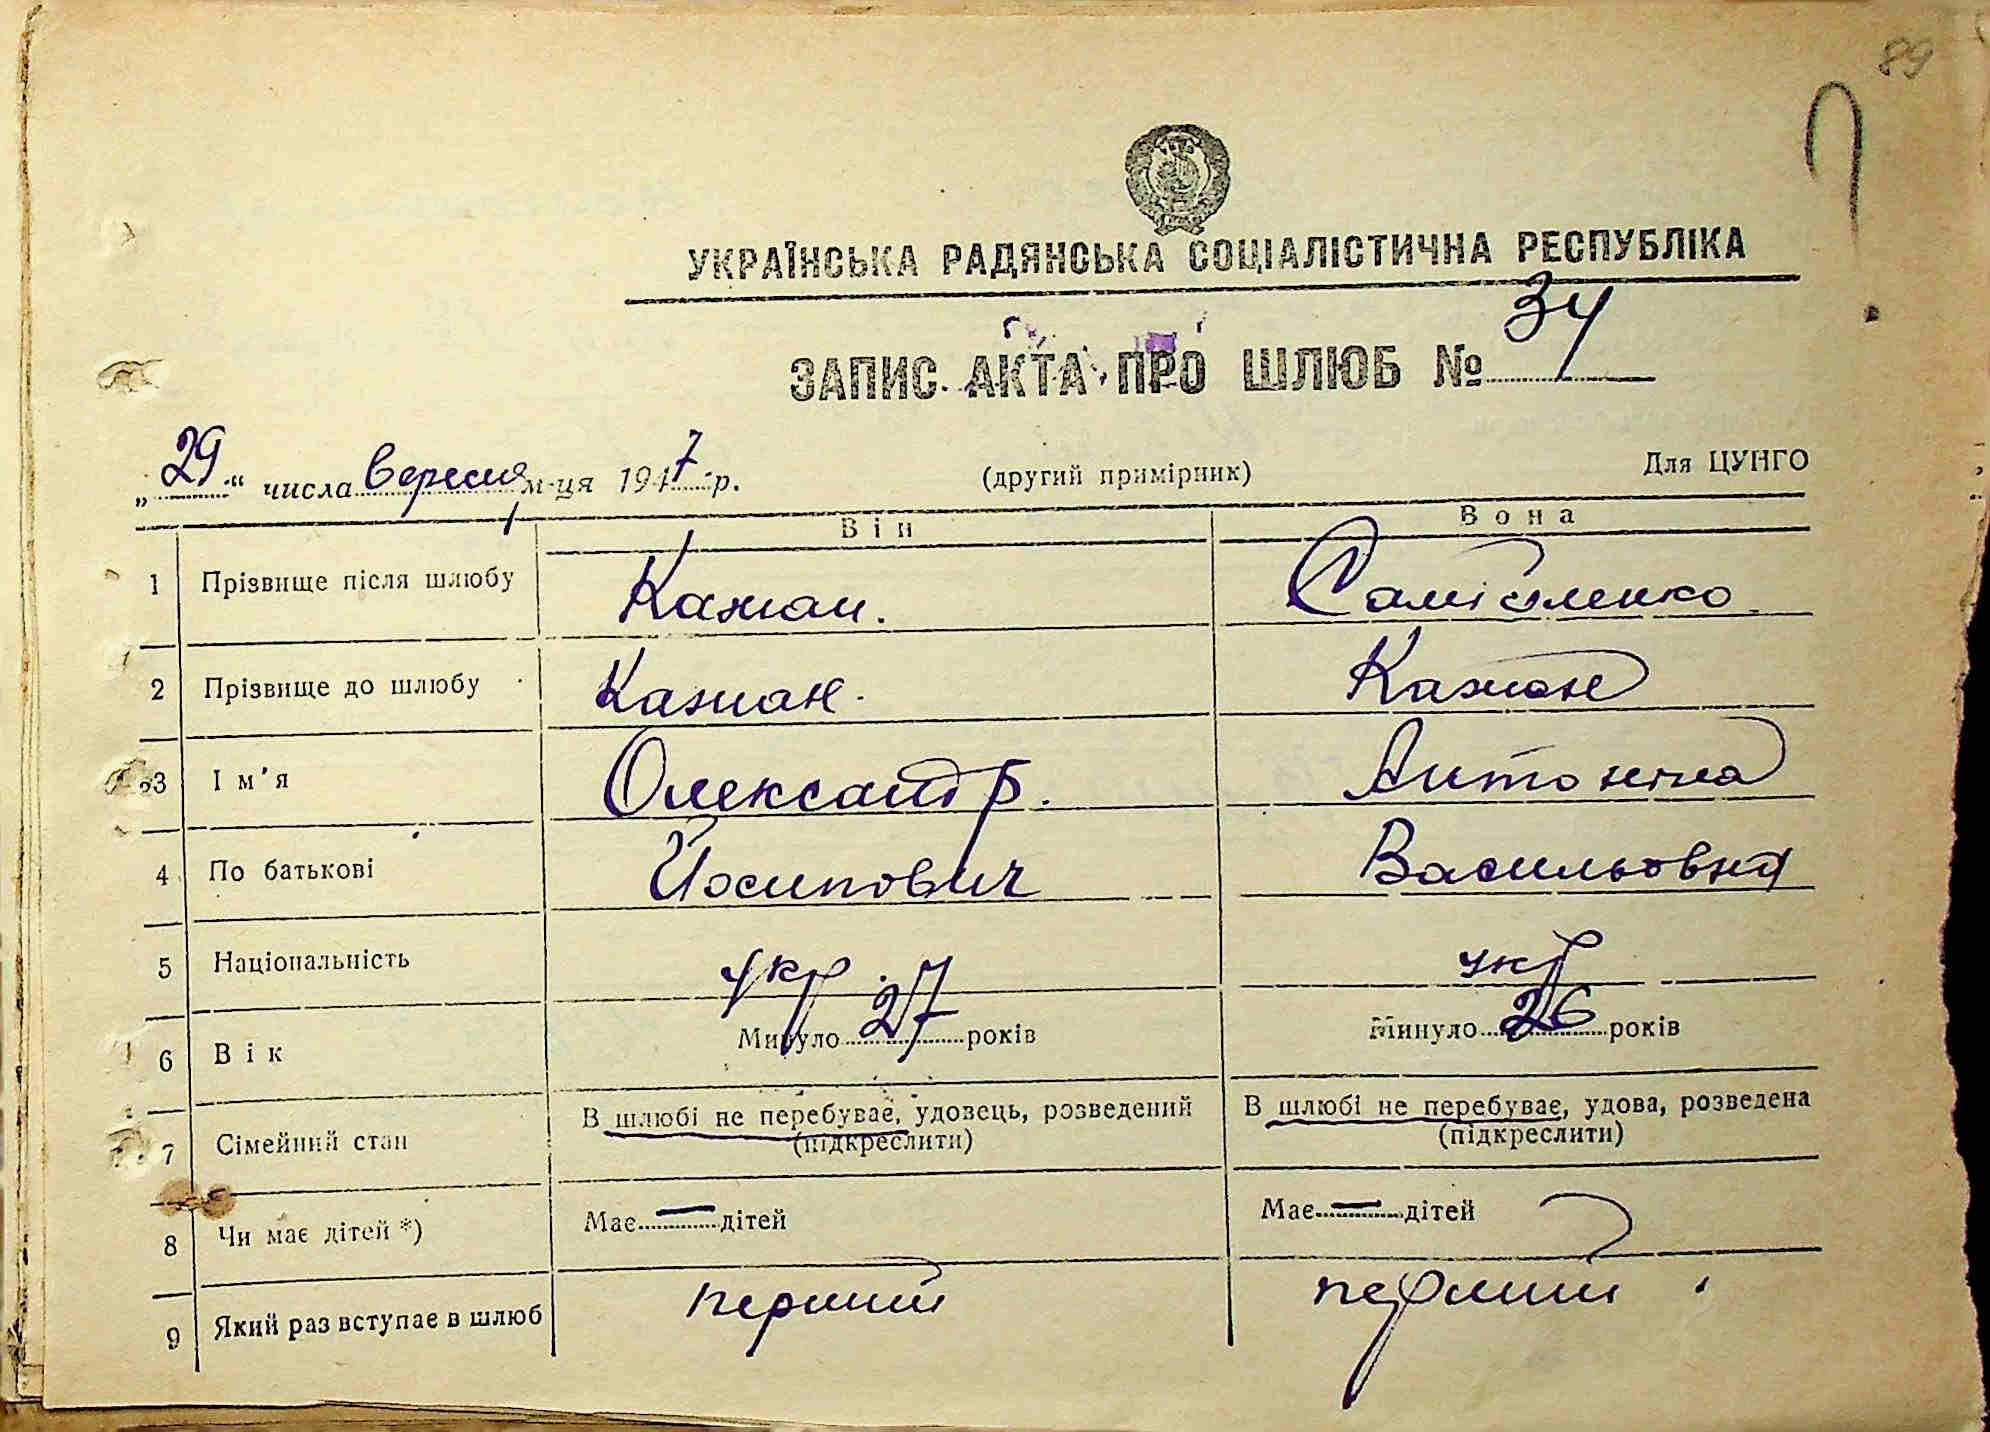 89
УКРАЇНСЬКА РАДЯНСЬКА СОЦІАЛІСТИЧНА РЕСПУБЛІКА
ЗАПИС АКТА ПРО ШЛЮБ № 34
„29“ числа вересня м-ця 1947 р. (другий примірник) Для ЦУНГО
Він Вона
1 Прізвище після шлюбу Кажан. Самійленко
2 Прізвище до шлюбу Кажан. Кажан
3 Ім'я Олександр. Антоніна
4 По батькові Йосипович Васильовна
5 Національність укр. укр
6 Вік Минуло 27 років Минуло 26 років
7 Сімейний стан В шлюбі не перебуває, удовець, розведений В шлюбі не перебуває, удова, розведена
(підкреслити) (підкреслити)
8 Чи має дітей *) Має — дітей Має — дітей
9 Який раз вступає в шлюб перший перший